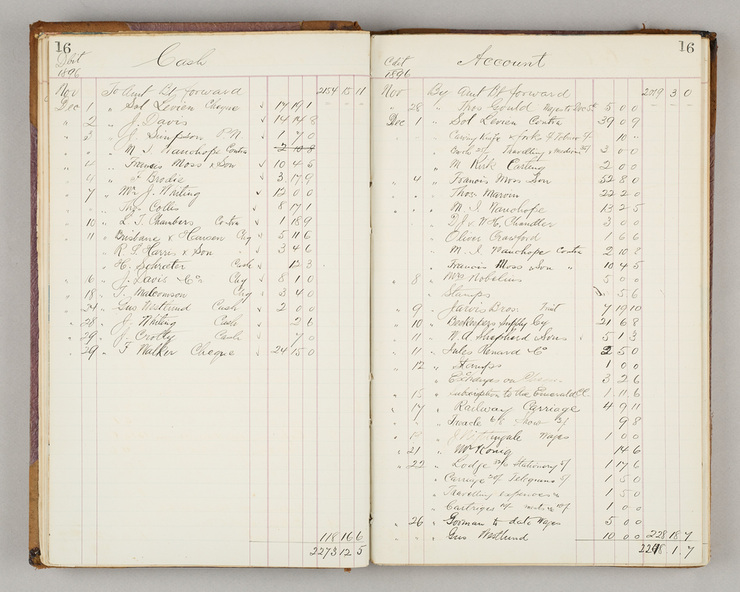 16
Debit Cash
1896
Nov To Amt Bt forward 2154 15 11
Dec 1 " Sol Levien Cheque 17 19 1
" 2 " J. Davis 14 14 8
" 3 " Simpson 1 7 0
" M I Wanchope Contra 2 10 8
" 4 " Francis Moss & Son 10 4 6
" 4 " Brodie 3 17 9
" 7 " Mr J. Whiting 12 0 0
" Thos Colles 8 17 1
" 10 " L. T. Chambers Contra 1 18 9
" 11 " Brisbane & Hansen Chq 5 11 6
" R. L. Harris & Son 3 4 6
" H. Schroter Cash 12 3
" 16 " J. Davis & Co Chq 8 1 0
" 18 " J. Malcomson Chq 3 4 0
" 24 " Gus Westlund Cash 2 0 0
" 28 " J. Whiting Cash 2 6
" 29 " J. Crotty Cash 7 0
" 29 " F Walker Cheque 24 15 0
118 16 6
2273 12 5
16
Cdit Account
1896
Nov By Amt Bt forward 2019 3 0
" 28 " Thos Gould Wages to Dec 5th 5 0 0
Dec 1 " Sol Levien Contra 39 0 9
" Carving Knife & forks 10 "
" Travelling & medicine 3 0 0
" M Kirk Carting 2 0 0
" 4 " Francis Moss Son 52 8 0
" " Thos Marom 22 2 0
" " M. I Wanchope 13 2 5
" D J & W H. Chandler 3 0 0
" Oliver Crawford 1 6 6
" M. I. Wanchope Contra 2 10 8
" Francis Moss & Son " 10 4 5
" 8 " Mrs Robelins 5 0 0
" Stamps 5 6
" 9 " Jarvis Bros. Fruit 7 19 10
" 10 " Beekeepers Supply Co 21 6 8
" 11 " W. A Shepherd & Sons 5 1 3
" 11 " Jules Renard & Co 2 5 0
" 12 " Stamps 1 0 0
" Exchanges on 3 2 6
" 15 " Subscription to the Emerald 1 11 6
" 17 " Railway Carriage 4 9 11
" " Treacle 9 8
" " Nightingale Wages 1 0 0
" 21 " Mr König 14 6
" 22 " Lodge Stationery 1 17 6
" Carriage Telegrams 1 5 0
" Travelling expenses 1 5 0
" Cartriges 1 0 0
" 26 " Gorman to date Wages 5 0 0
" " Gus Westlund 10 0 0 228 18 7
2248 1 7